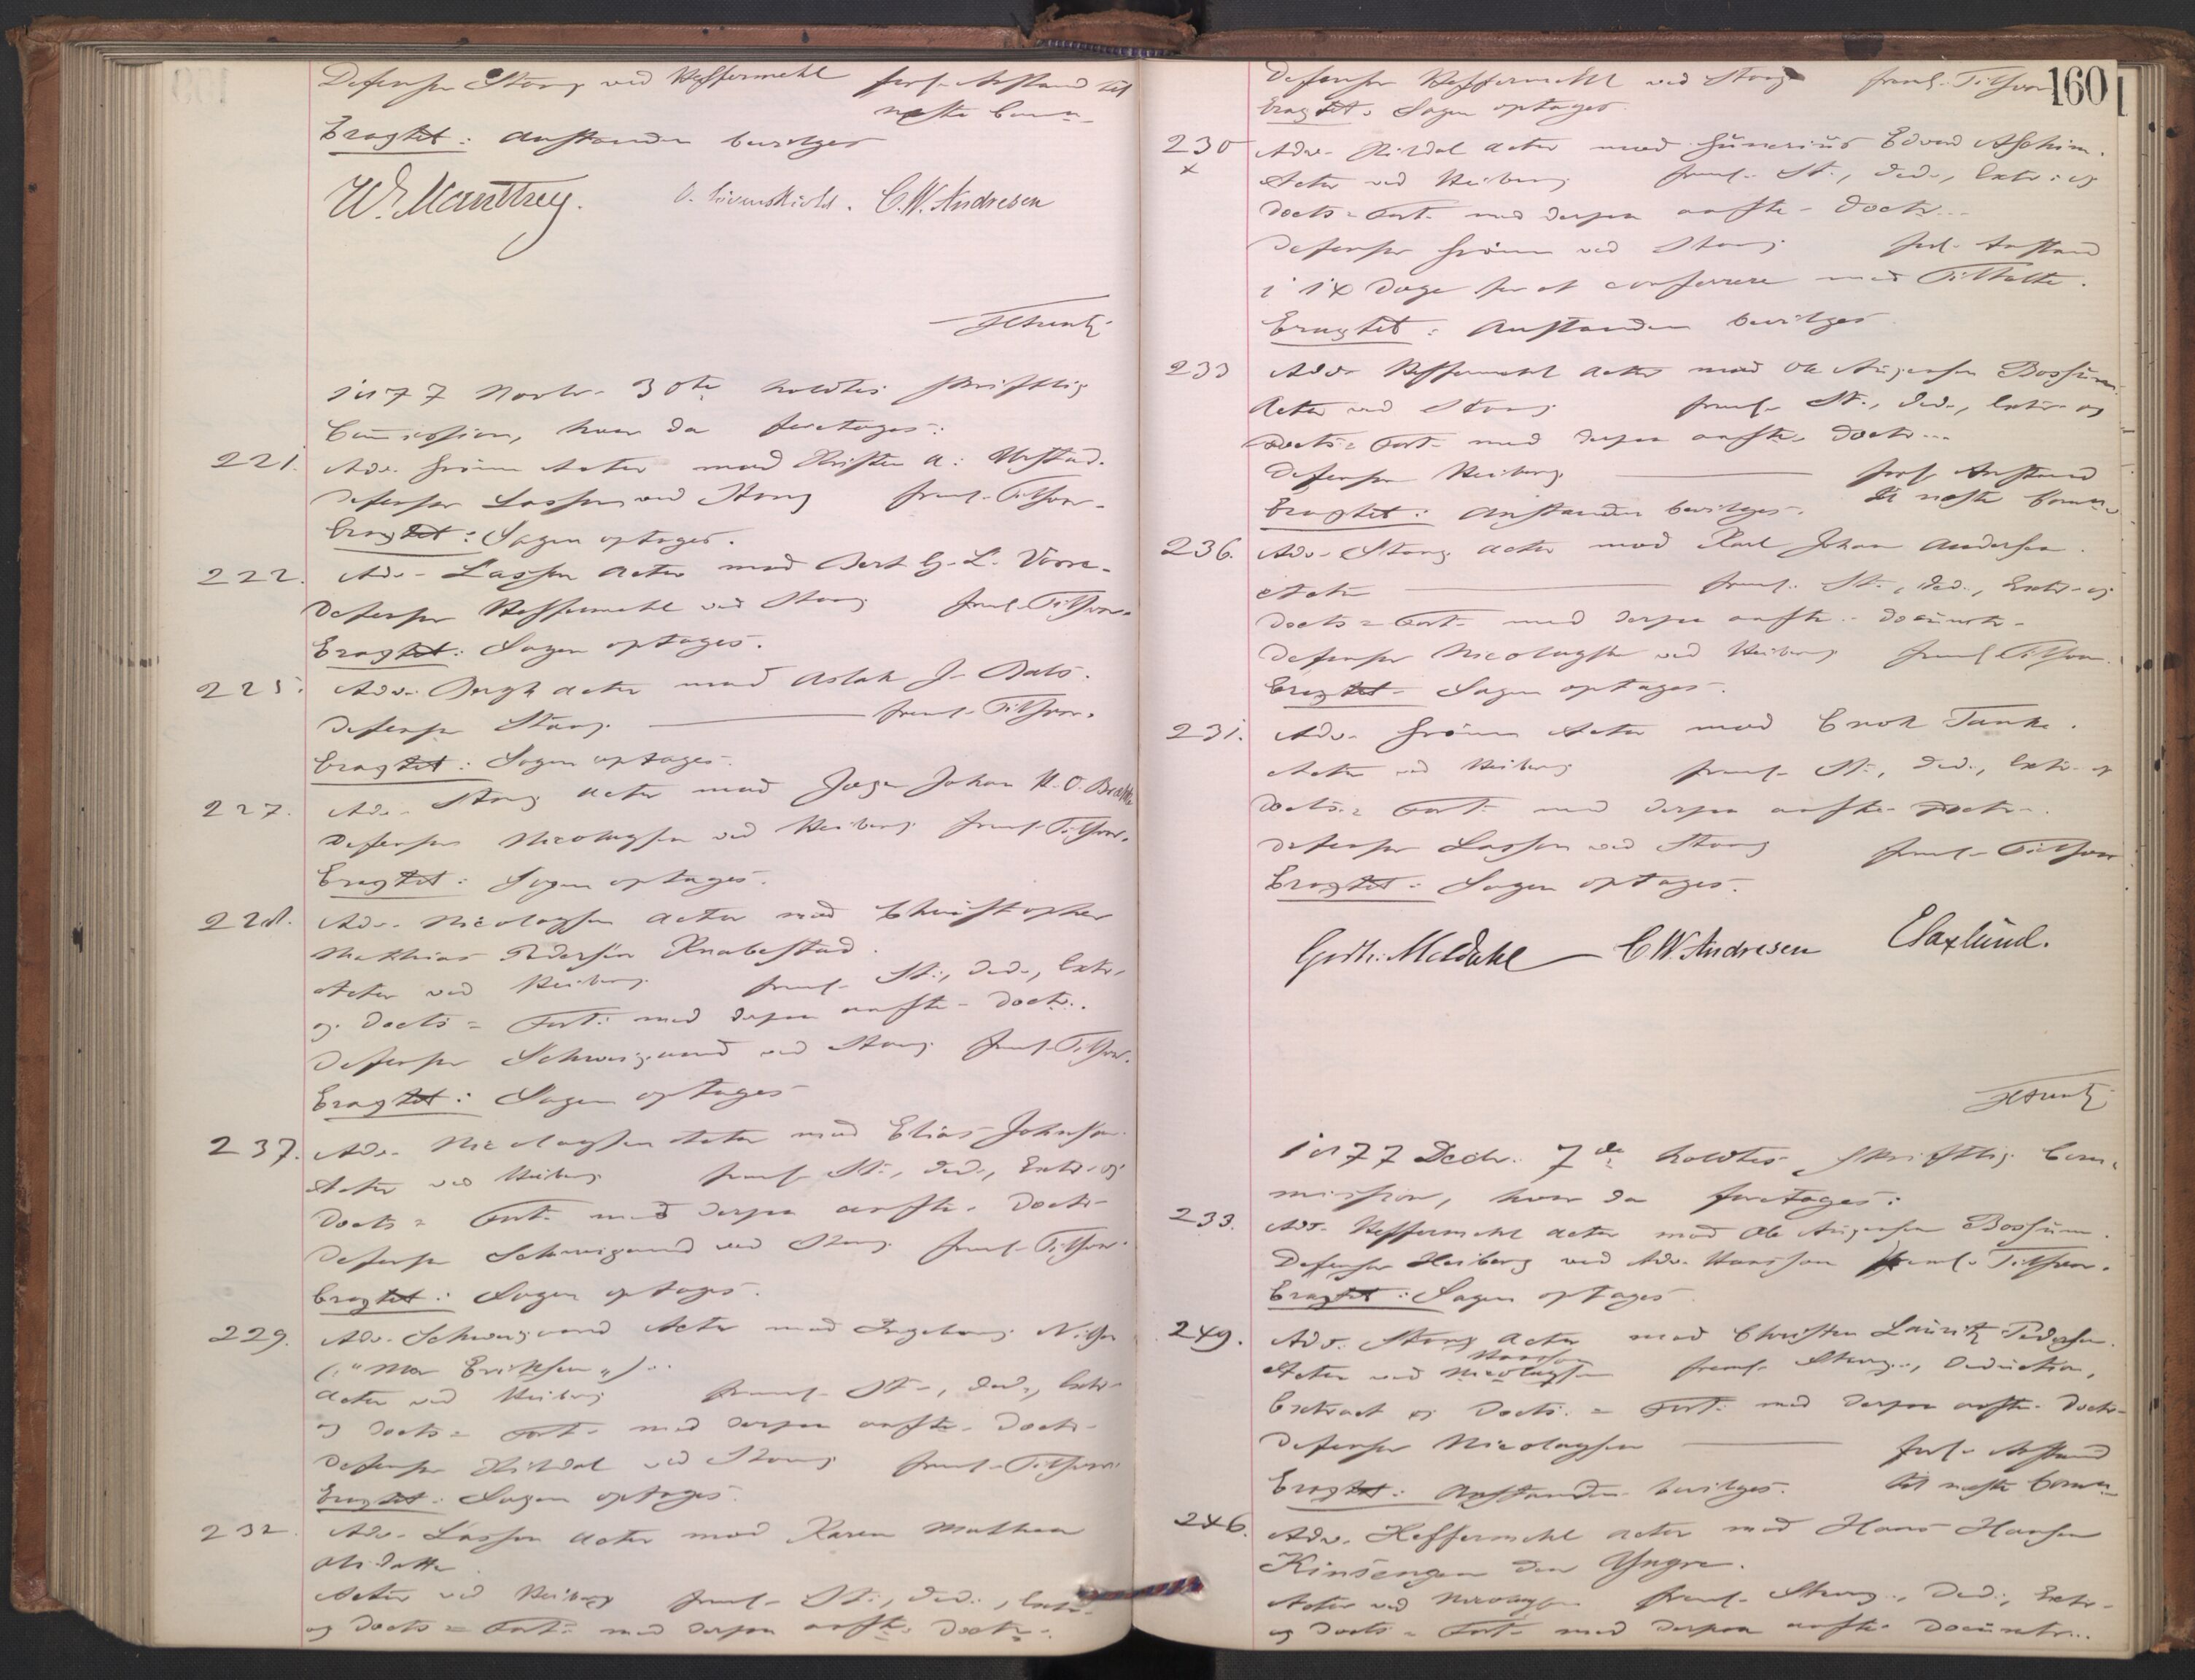 Defensor Stang ved Heffermehl forl. Anstand til
næste Comm.
Eragtet: Anstanden bevilges
W. Manthey. O. Løvenskiold. C.W. Andresen
1877 Novbr. 30te holdtes skriftlig
Commission, hvor da foretages:
221. Adv. Grønn Actor mod Kristen A. Ustad.
Defensor Lassen ved Stang freml. Tilsvar.
Eragtet: Sagen optages.
222. Adv. Lassen Actor mod Bert G. L. Vorre.
Defensor Heffermehl ved Stang freml. Tilsvar.
Eragtet: Sagen optages.
225. Adv. Bergh Actor mod Aslak J. Dals.
Defensor Stang freml. Tilsvar.
Eragtet: Sagen optages.
227. Adv. Stang Actor mod Johan H. O.
Defensor Nicolaysen ved Heiberg freml. Tilsvar.
Eragtet: Sagen optages.
228. Adv. Nicolaysen Actor mod Christopher
Mathias Pedersen Knabestad.
Actor ved Heiberg freml. St., Ded., Extr.
og Docts = Fort. med derpaa anførte Doctr.
Defensor Schweigaard ved Stang freml. Tilsvar.
Eragtet: Sagen optages
237. Adv. Nicolaysen Actor mod Elias Johnsen.
Actor ved Heiberg freml. St., Ded., Extr. og
Docts = Fort. med derpaa anførte Doctr.
Defensor Schweigaard ved Stang freml. Tilsvar.
Eragtet: Sagen optages.
229. Adv. Schweigaard Actor mod Ingeborg Nilsen
("Mor Eriksen").
Actor ved Heiberg freml. St., Ded., Extr.
og Docts = Fort. med derpaa anførte Doctr.
Defensor Hildal ved Stang freml. Tilsvar.
Eragtet: Sagen optages.
232. Adv. Lassen Actor mod Karen Mathea
Olsdatter.
Actor ved Heiberg freml. St., Ded., Extr.
og Docts = Fort. med derpaa anførte Doctr.
160
Defensor Heffermehl ved Stang freml. Tilsvar
Eragtet: Sagen optages.
230 Adv. Hildal Actor mod Gunerius Edvard Asheim.
x Actor ved Heiberg freml. St., Ded., Extr. og
Docts = Fort. med derpaa anførte Doctr.
Defensor Grønn ved Stang forl. Anstand
i 14 Dage for at conferere med Tiltalte.
Eragtet: Anstanden bevilges
233 Adv. Heffermehl Actor mod Ole Jørgensen Bossum.
Actor ved Stang freml. St., Ded., Extr. og
Docts = Fort. med derpaa anførte Doctr.
Defensor Heiberg forl. Anstand
til næste Comm.
Eragtet: Anstanden bevilges.
236. Adv. Stang Actor mod Karl Johan Andersen.
Actor freml. St., Ded., Extr. og
Docts = Fort. med derpaa anførte Documtr.
Defensor Nicolaysen ved Heiberg freml. Tilsvar.
Eragtet: Sagen optages.
231. Adv. Grønn Actor mod Enok Tanke.
Actor ved Heiberg freml. St., Ded., Extr. og
Docts = Fort. med derpaa anførte Doctr.
Defensor Lassen ved Stang freml. Tilsvar
Eragtet: Sagen optages.
Godtr. Meldahl C.W. Andresen E. Saxlund.
1877 Decbr. 7de holdtes skriftlig Com-
mission, hvor da foretages:
233. Adv. Heffermehl Actor mod Ole Jørgensen Bossum.
Defensor Heiberg ved Adv. Hansson freml. Tilsvar.
Eragtet: Sagen optages
249. Adv. Stang Actor mod Christen Lauritz Pedersen.
Hansson
Actor ved Nicolaysen freml. Stevng., Deduction,
Extract og Docts. = Fort. med derpaa anførte Doctr.
Defensor Nicolaysen forl. Anstand
til næste Comm.
Eragtet: Anstanden bevilges.
246. Adv. Heffermehl Actor mod Hans Hansen
Kinsengen den Yngre.
Actor ved Nicolaysen freml. Stevng., Ded., Extr.
og Docts = Fort. med derpaa anførte Documtr.